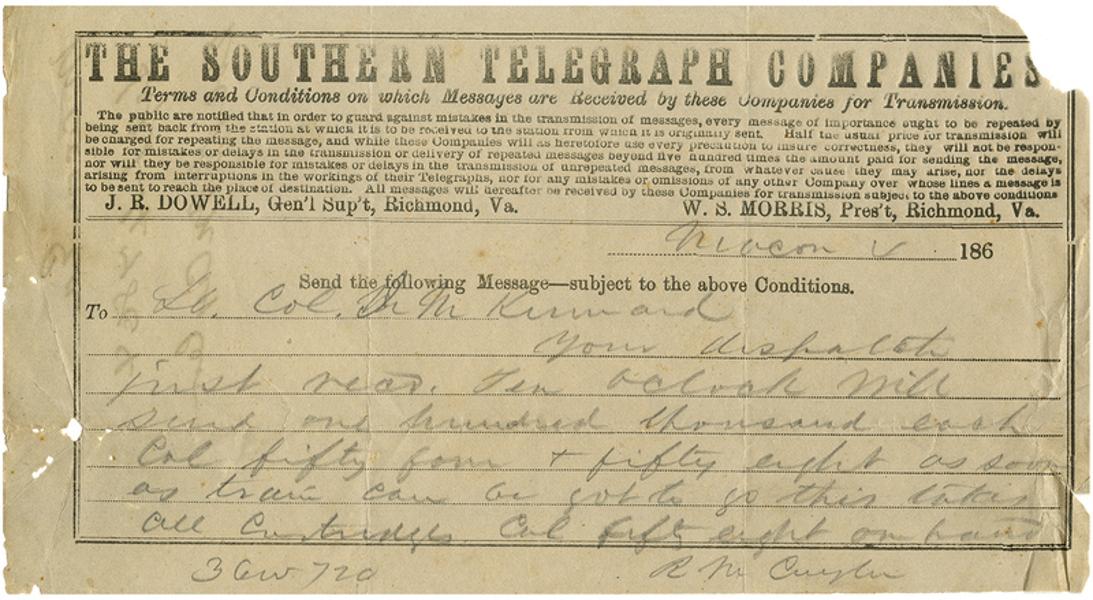 THE SOUTHERN TELEGRAPH COMPANIES
Terms and Conditions on which Messages are Received by these Companies for Transmission.
The public are notified that in order to guard against mistakes in the transmission of messages, every message of importance ought to be repeated by
being sent back from the station at which it is to be received to the station from which it is originally sent. Half the usual price for transmission will
be charged for repeating the message, and while these Companies will as heretofore use every precaution to insure correctness, they will not be respon-
sible for mistakes or delays in the transmission or delivery of repeated messages beyond five hundred times the amount paid for sending the message,
nor will they be responsible for mistakes or delays in the transmission of unrepeated messages, from whatever cause they may arise, nor the delays
arising from interruptions in the workings of their Telegraphs, nor for any mistakes or omissions of any other Company over whose lines a message is
to be sent to reach the place of destination. All messages will hereafter be received by these Companies for transmission subject to the above conditions
J. R. DOWELL, Gen'l Sup't, Richmond, Va. W. S. MORRIS, Pres't, Richmond, Va.
Macon 186
Send the following Message—subject to the above Conditions.
To Lt. Col. M Kennard
Your dispatch
just recd. Ten oclock Will
send one hundred thousand each
Cal fifty four + fifty eight as soon
as train can be got to go this takes
all Cartridges. Cal fifty eight on hand
36 720
R M Cuyler